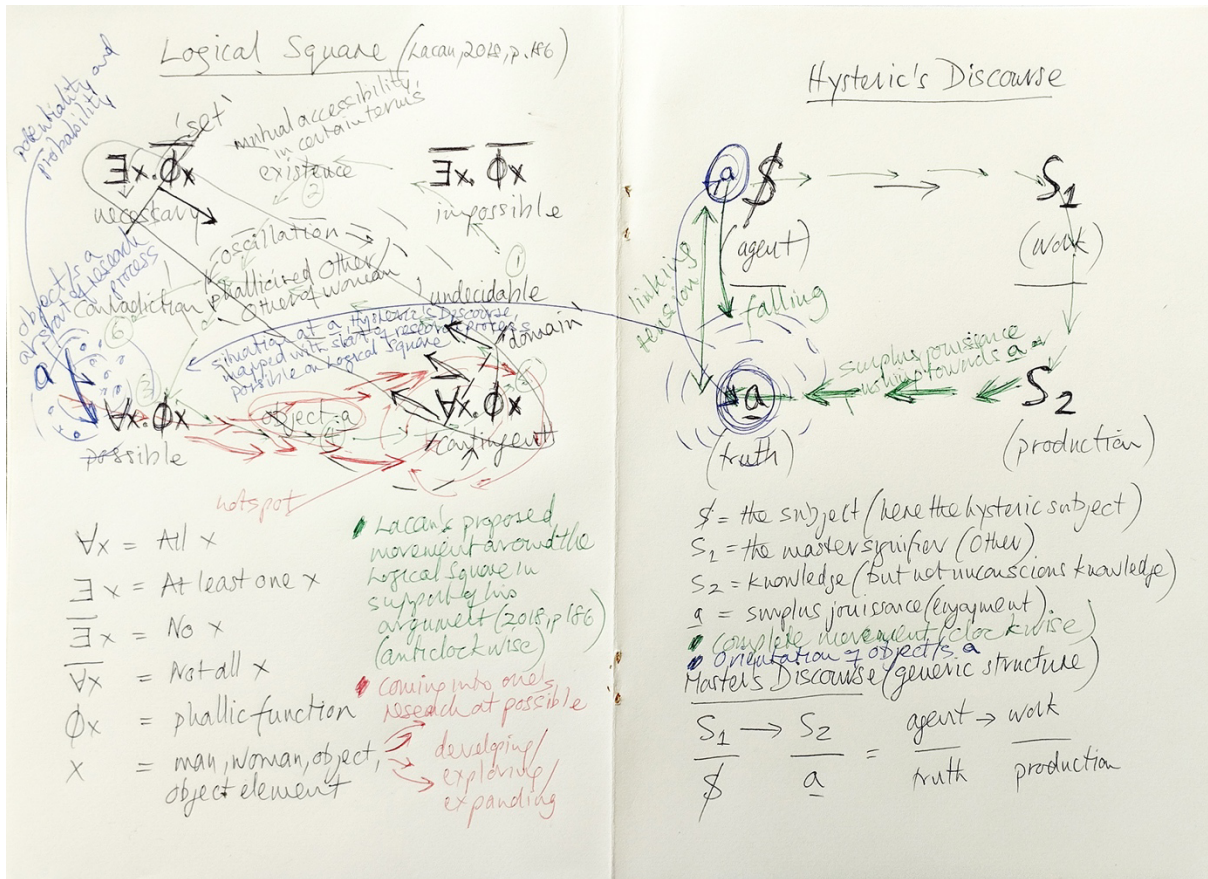 Logical Square (Lacan, 2018, p.186)
potentiality and
probability
'set'
mutual accessibility
in certain terms
existence
②
∃x.Φ̅x̅
necessary
∃̅x̅.Φ̅x̅
impossible
oscillation
①
phallicized Other
Other of woman
contradiction
undecidable
object/s a
at start of research
process
⑥
domain
situation at a Hysteric's Discourse
mapped with start of research process
possible on Logical Square
a
③
∀x.Φx
possible
object a
④
∀̅x̅.Φx
contingent
hotspot
∀x = All x
∃x = At least one x
∃̅x̅ = No x
∀̅x̅ = Not all x
Φx = phallic function
x = man, woman, object,
object element
Lacan's proposed
movement around the
Logical Square in
support of his
argument (2018, p186)
(anticlockwise)
coming into one's
research at possible
developing/
exploring/
expanding
Hysteric's Discourse
a $ S1
(agent) (work)
linking
tension
falling
surplus jouissance
pushing towards a
a S2
(truth) (production)
$ = the subject (here the hysteric subject)
S1 = the master signifier (Other)
S2 = knowledge (but not unconscious knowledge)
a = surplus jouissance (enjoyment).
complete movement (clockwise)
orientation of object/s a
Master's Discourse (generic structure)
S1 → S2 = agent → work
$ a truth production